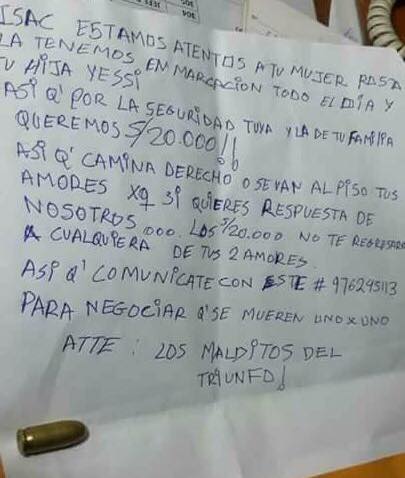 ISAC ESTAMOS ATENTOS A TU MUJER ROSA
LA TENEMOS EN MARCACION TODO EL DIA Y
TU HIJA YESSI
ASI Q' POR LA SEGURIDAD TUYA Y LA DE TU FAMIPA
QUEREMOS S/20.000!!
ASI Q' CAMINA DERECHO O SE VAN AL PISO TUS
AMORES XQ SI QUIERES RESPUESTA DE
NOSOTROS 000. LOS S/20.000 NO TE REGRESARA
A CUALQUIERA DE TUS 2 AMORES.
ASI Q' COMUNICATE CON ESTE # 976295113
PARA NEGOCIAR Q' SE MUEREN UNO X UNO
ATTE : LOS MALDITOS DEL
TRIUNFO!